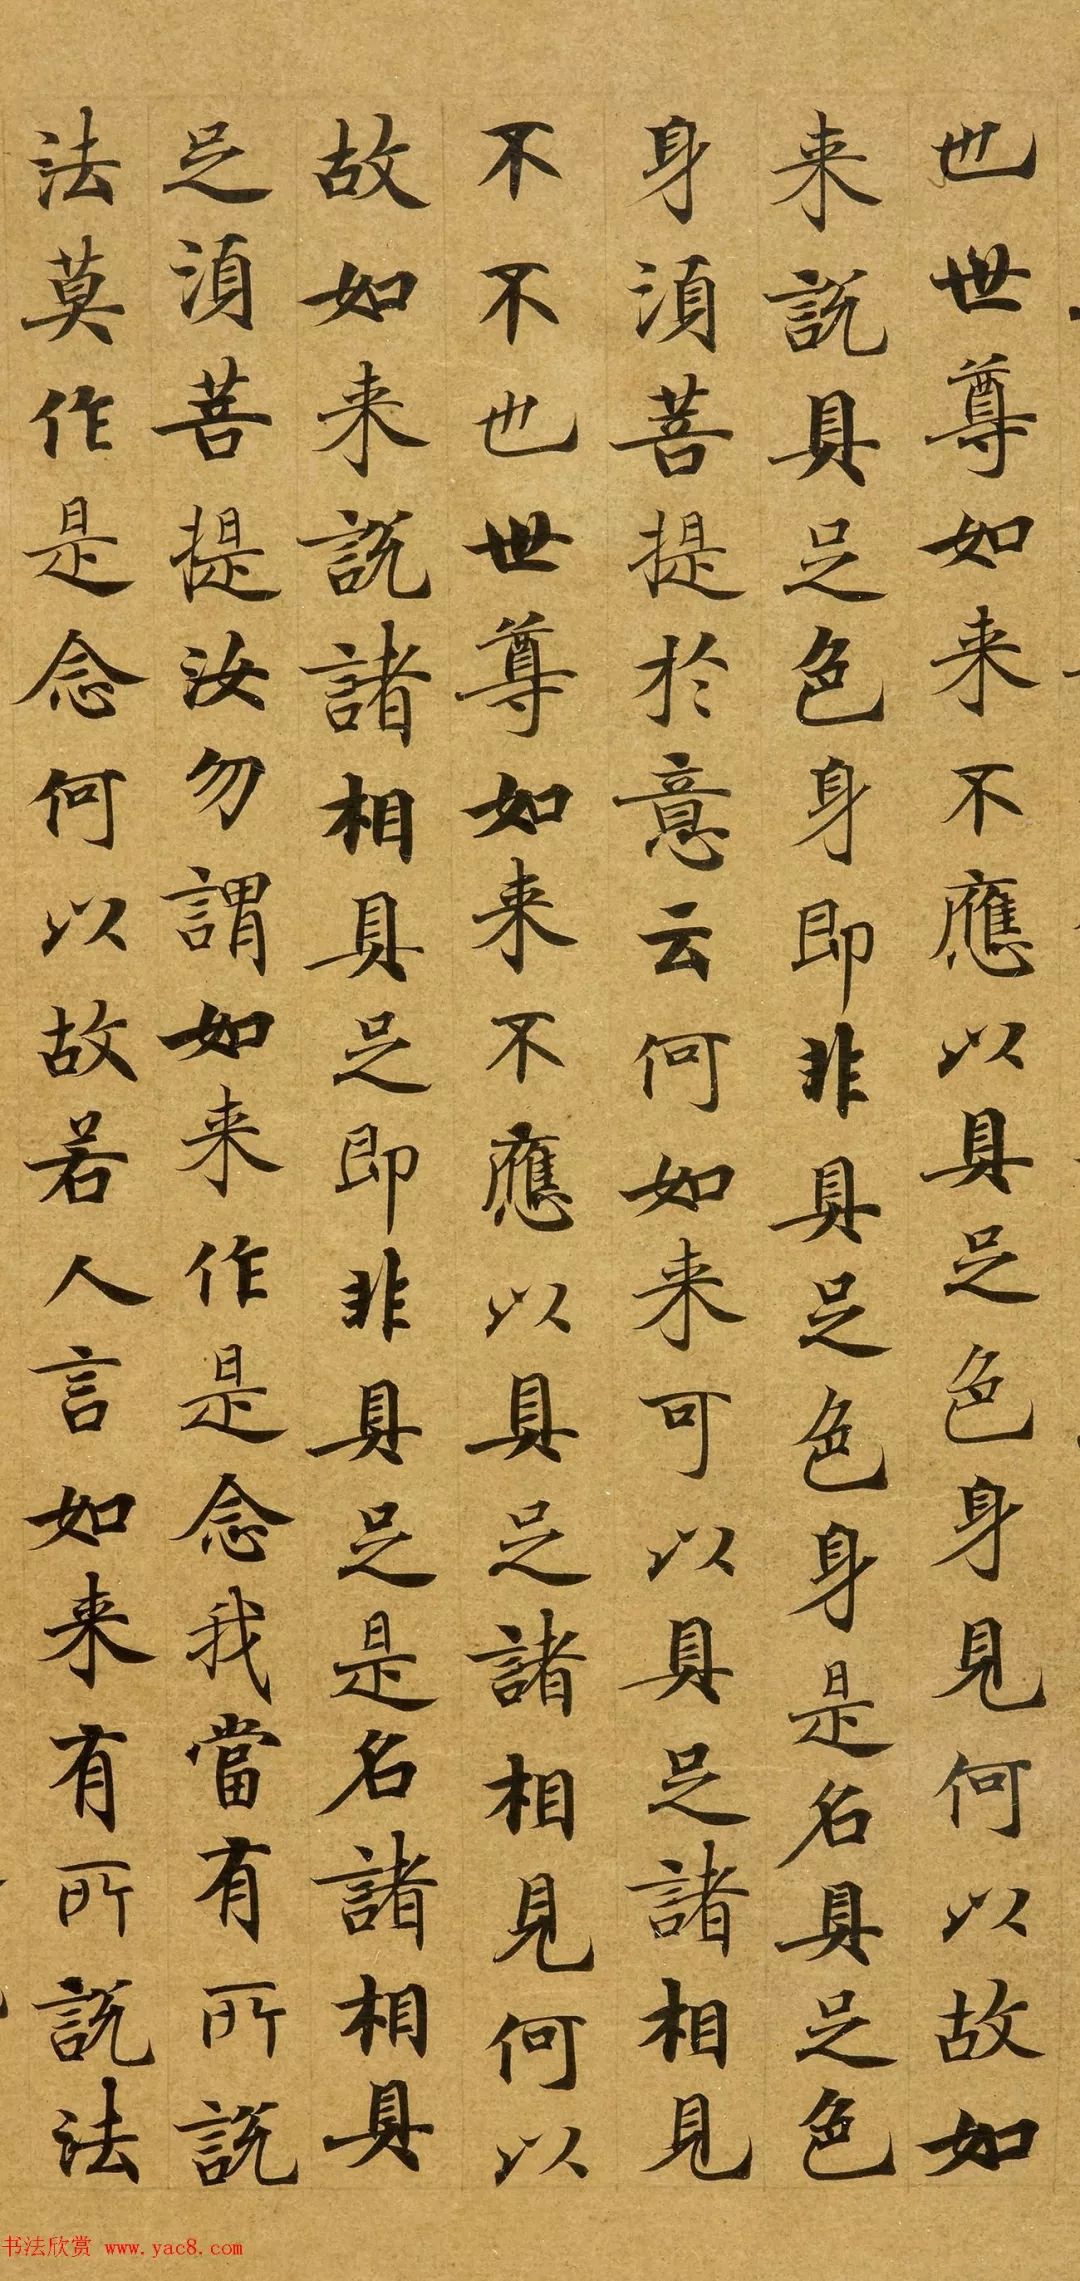 也世尊如来不應以具足色身見何以故如
来説具足色身即非具足色身是名具足色
身須菩提於意云何如来可以具足諸相見
不不也世尊如来不應以具足諸相見何以
故如来説諸相具足即非具足是名諸相具
足須菩提汝勿謂如来作是念我當有所説
法莫作是念何以故若人言如来有所説法
书法欣赏 www.yac8.com